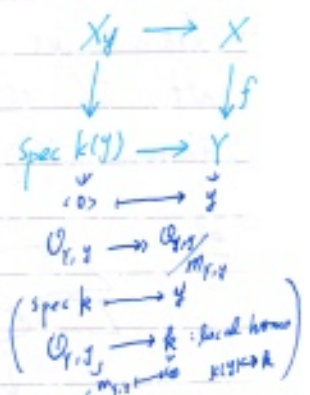 X_y → X
↓ ↓ f
Spec k(y) → Y
<0> ↦ y
O_{Y,y} → O_{Y,y}/m_{Y,y}
( Spec k → y
O_{Y,y} → k : local homo
m_{Y,y} ↦ 0 k(y) ↪ k )